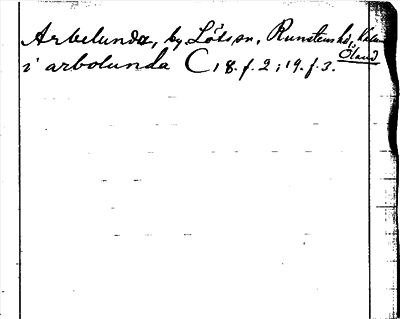 Arbelunda, by Löts sn, Runstens hd, Kalm.
Öland
i arbolunda C, 8. f. 2; 19. f. 3.